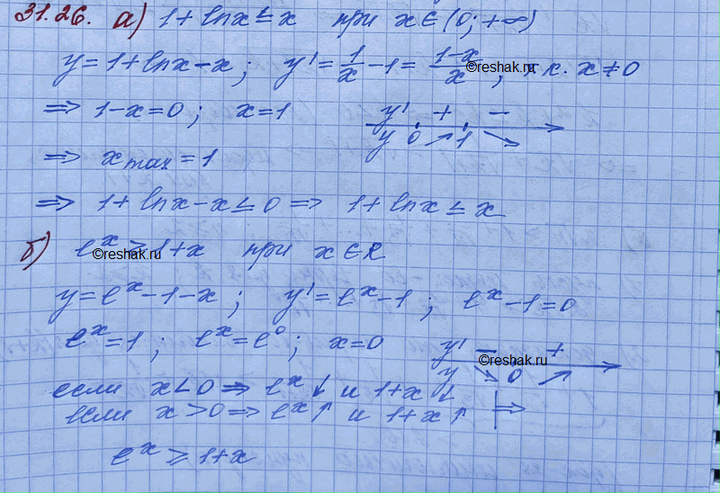 31.26. а) 1 + lnx ≤ x при x ∈ (0; +∞)
y = 1 + lnx - x; y' = 1/x - 1 = (1-x)/x, т.к. x ≠ 0
©reshak.ru
⇒ 1-x=0; x=1
y' + -
y 0 ↗ 1 ↘
⇒ xmax = 1
⇒ 1 + lnx - x ≤ 0 ⇒ 1 + lnx ≤ x
б) e^x ≥ 1+x при x ∈ R
©reshak.ru
y = e^x - 1 - x; y' = e^x - 1; e^x - 1 = 0
e^x = 1; e^x = e^0; x = 0
y' - +
©reshak.ru
y ↘ 0 ↗
если x < 0 ⇒ e^x ↓ и 1+x ↓
если x > 0 ⇒ e^x ↑ и 1+x ↑ | ⇒
e^x ≥ 1+x